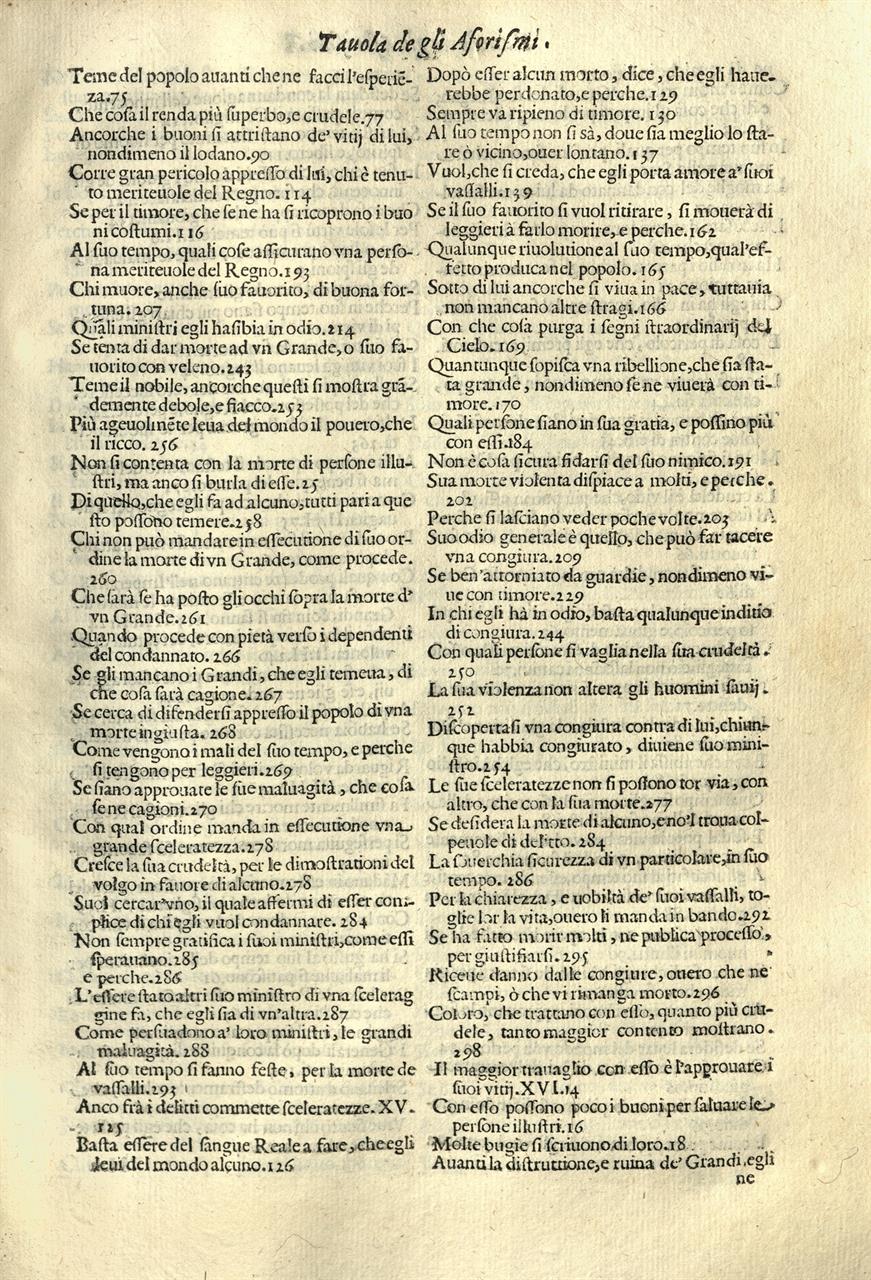 Tauola de gli Aforismi.
Teme del popolo auanti che ne facci l'esperiē-
za.75
Che cosa il renda più superbo,e crudele.77
Ancorche i buoni si attristano de' vitij di lui,
nondimeno il lodano.90
Corre gran pericolo appresso di lui, chi è tenu-
to meriteuole del Regno. 114
Se per il timore, che se ne ha si ricoprono i buo
ni costumi.116
Al suo tempo, quali cose assicurano vna perso-
na meriteuole del Regno.193
Chi muore, anche suo fauorito, di buona for-
tuna. 207
Quali ministri egli hasibia in odio.214
Se tenta di dar morte ad vn Grande, o suo fa-
uorito con veleno.243
Teme il nobile, ancorche questi si mostra grā-
demente debole,e fiacco.253
Più ageuolmēte leua del mondo il pouero,che
il ricco. 256
Non si contenta con la morte di persone illu-
stri, ma anco si burla di esse.25
Di quello,che egli fa ad alcuno,tutti pari a que
sto possono temere.258
Chi non può mandare in essecutione di suo or-
dine la morte di vn Grande, come procede.
260
Che sarà se ha posto gli occhi sopra la morte d'
vn Grande.261
Quando procede con pietà verso i dependenti
del condannato. 266
Se gli mancano i Grandi, che egli temeua, di
che cosa sarà cagione.267
Se cerca di difendersi appresso il popolo di vna
morte ingiusta. 268
Come vengono i mali del suo tempo, e perche
si tengono per leggieri.269
Se siano approuate le sue maluagità, che cosa
se ne cagioni.270
Con qual ordine manda in essecutione vna
grande sceleratezza.278
Cresce la sua crudeltà, per le dimostrationi del
volgo in fauore di alcuno.278
Suol cercar'vno, il quale affermi di esser com-
plice di chi egli vuol condannare. 284
Non sempre gratifica i suoi ministri,come essi
sperauano.285
e perche.286
L'essere stato altri suo ministro di vna scelerag
gine fa, che egli sia di vn'altra.287
Come persuadono a' loro ministri, le grandi
maluagità. 288
Al suo tempo si fanno feste, per la morte de
vassalli.293
Anco frà i delitti commette sceleratezze. XV.
125
Basta essere del sangue Reale a fare, che egli
leui del mondo alcuno.126
Dopò esser alcun morto, dice, che egli haue-
rebbe perdonato,e perche.129
Sempre va ripieno di timore. 130
Al suo tempo non si sà, doue sia meglio lo sta-
re ò vicino,ouer lontano.137
Vuol,che si creda, che egli porta amore a' suoi
vassalli.139
Se il suo fauorito si vuol ritirare, si mouerà di
leggieri à farlo morire, e perche.162
Qualunque riuolutione al suo tempo,qual'ef-
fetto produca nel popolo. 165
Sotto di lui ancorche si viua in pace, tuttauia
non mancano altre stragi.166
Con che cosa purga i segni straordinarij del
Cielo.169
Quantunque sopisca vna ribellione,che sia sta-
ta grande, nondimeno se ne viuerà con ti-
more.170
Quali persone siano in sua gratia, e possino più
con essi.184
Non è cosa sicura fidarsi del suo nimico.191
Sua morte violenta dispiace a molti, e perche.
202
Perche si lasciano veder poche volte.203
Suo odio generale è quello, che può far tacere
vna congiura.209
Se ben'attorniato da guardie, nondimeno vi-
ue con timore.229
In chi egli hà in odio, basta qualunque inditio
di congiura.244
Con quali persone si vaglia nella sua crudeltà.
250
La sua violenza non altera gli huomini sauij.
252
Discopertasi vna congiura contra di lui,chiun-
que habbia congiurato, diuiene suo mini-
stro.254
Le sue sceleratezze non si possono tor via, con
altro, che con la sua morte.277
Se desidera la morte di alcuno,e no'l troua col-
peuole di delitto. 284
La souerchia sicurezza di vn particolare,in suo
tempo. 286
Per la chiarezza, e uobiltà de' suoi vassalli, to-
glie lor la vita,ouero li manda in bando.292
Se ha fatto morir molti, ne publica processo,
per giustifiarsi. 295
Riceue danno dalle congiure, ouero che ne
scampi, ò che vi rimanga morto.296
Coloro, che trattano con esso, quanto più cru-
dele, tanto maggior contento mostrano.
298
Il maggior trauaglio con esso è l'approuare i
suoi vitij.XVI.14
Con esso possono poco i buoni per saluare le
persone illustri.16
Molte bugie si scriuono di loro.18
Auanti la distruttione,e ruina de' Grandi,egli
ne